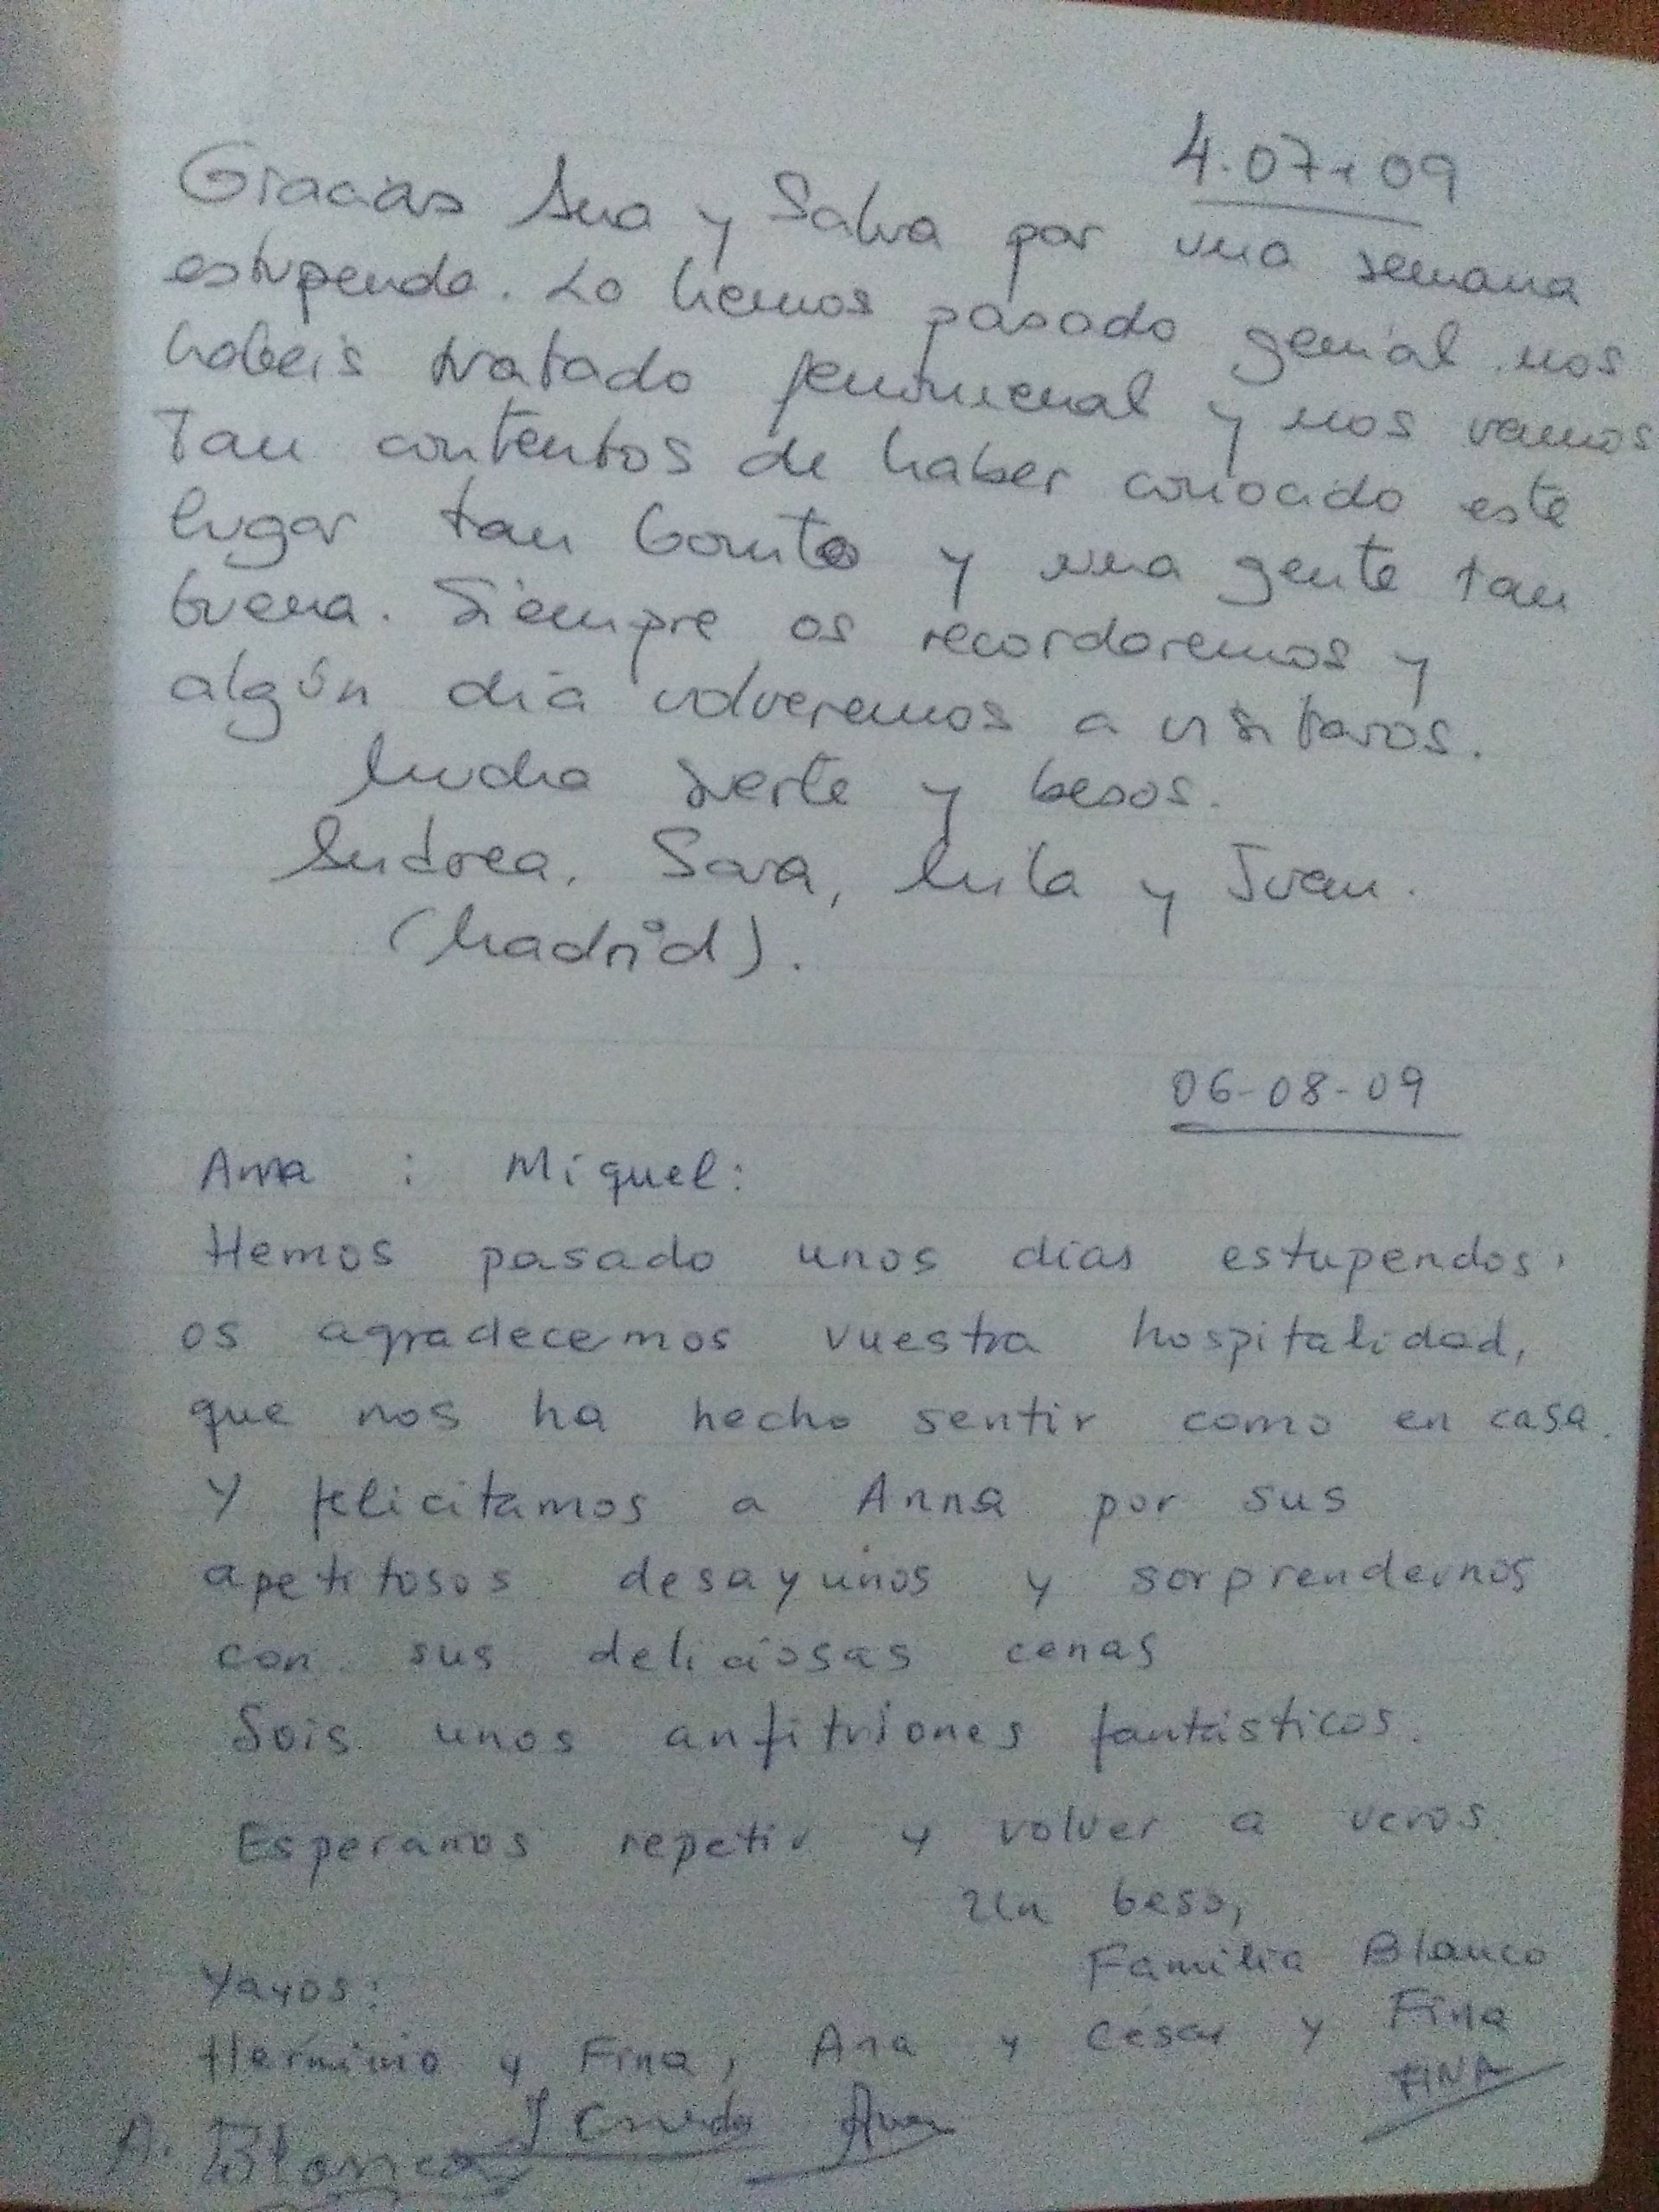 4.07.09
Gracias Ana y Salva por una semana
estupenda. Lo hemos pasado genial nos
habeis tratado fenomenal y nos vamos
Tan contentos de haber conocido este
lugar tan bonito y una gente tan
buena. Siempre os recordaremos y
algún día volveremos a visitaros.
Mucha suerte y besos.
Andrea, Sara, Mila y Juan.
(Madrid).
06-08-09
Anna i Miquel:
Hemos pasado unos días estupendos,
os agradecemos vuestra hospitalidad,
que nos ha hecho sentir como en casa.
Y felicitamos a Anna por sus
apetitosos desayunos y sorprendernos
con sus deliciosas cenas
Sois unos anfitriones fantásticos.
Esperanos repetir y volver a veros.
Un beso,
Familia Blanco
Yayos:
Herminio y Fina, Ana y César y Fina
FINA
A. Blanco Ana